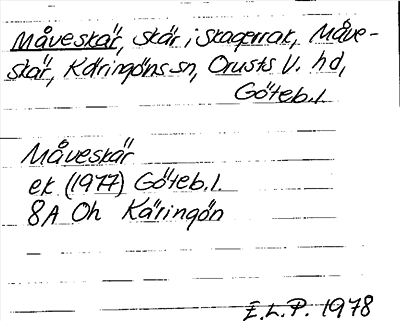 Måveskär, skär i Skagerrak, Måve-
skär, Käringöns sn, Orusts V. hd,
Göteb. l.
Måveskär
ek (1977) Göteb. l.
8A Oh Käringön
E.L.P. 1978